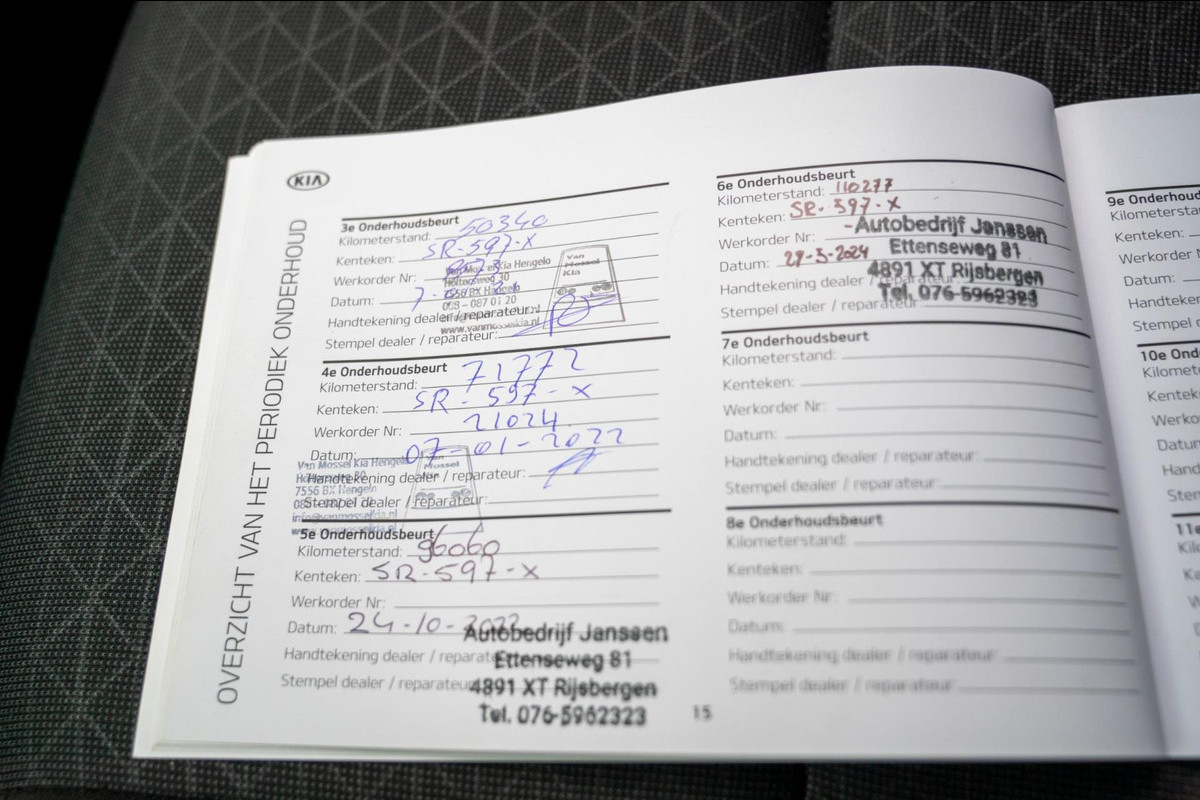 KIA
OVERZICHT VAN HET PERIODIEK ONDERHOUD
3e Onderhoudsbeurt
Kilometerstand: 50340
Kenteken: SR-597-X
Werkorder Nr:
Van Mossel Kia Hengelo
Datum: 7-
Handtekening dealer / reparateur:
Stempel dealer / reparateur:
www.vanmosselkia.nl
Van
Mossel
Kia
4e Onderhoudsbeurt
Kilometerstand: 71772
Kenteken: SR-597-X
Werkorder Nr: 21024
Datum: 07-01-2022
Van Mossel Kia Hengelo
7556 BX Hengelo
Handtekening dealer / reparateur:
Stempel dealer / reparateur:
Mossel
5e Onderhoudsbeurt
Kilometerstand: 96060
Kenteken: SR-597-X
Werkorder Nr:
Datum: 24-10-2022
Handtekening dealer / reparateur
Stempel dealer / reparateur
Autobedrijf Janssen
Ettenseweg 81
4891 XT Rijsbergen
Tel. 076-5962323
15
6e Onderhoudsbeurt
Kilometerstand: 110277
Kenteken: SR-597-X
Werkorder Nr: -
Datum: 27-3-2024
Handtekening dealer / reparateur:
Stempel dealer / reparateur:
Autobedrijf Janssen
Ettenseweg 81
4891 XT Rijsbergen
Tel. 076-5962323
7e Onderhoudsbeurt
Kilometerstand:
Kenteken:
Werkorder Nr:
Datum:
Handtekening dealer / reparateur:
Stempel dealer / reparateur:
8e Onderhoudsbeurt
Kilometerstand:
Kenteken:
Werkorder Nr:
Datum:
Handtekening dealer / reparateur:
Stempel dealer / reparateur:
9e Onderhoudsb
Kilometersta
Kenteken:
Werkorder N
Datum:
Handtekeni
Stempel d
10e Ond
Kilomete
Kenteke
Werko
Datum
Hand
Stem
11e
Kilo